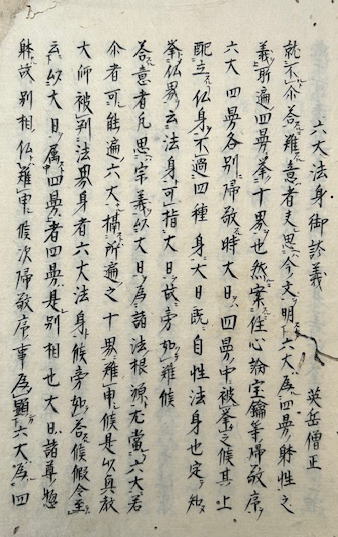 六大法身御談義 英岳僧正
就不尒答難意者夫思今文明六大為四曼躰性之
義所遍四曼挙十界也然案住心論宝鑰等帰敬序
六大四曼各別帰敬時大日四曼中被挙之候其上
配立仏身不過四種身大日既自性法身也定知
挙仏界云法身可指大日故旁如難候
答意者凡思宗義以大日為諸法根源尤當六大若
尒者可能遍六大摂所遍之十界難申候是以真教
大師被判法界身者六大法身候旁如答候但令至
云以大日属四曼者四曼是別相也大日諸尊惣
躰故別相仏難申候次帰敬序事為顕六大為四